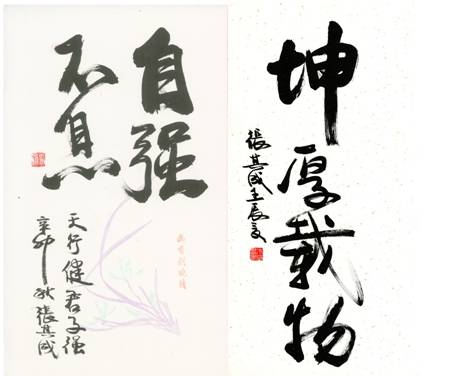 自强
不息
天行健君子强
辛卯秋張其成
坤厚載物
張其成壬辰夏